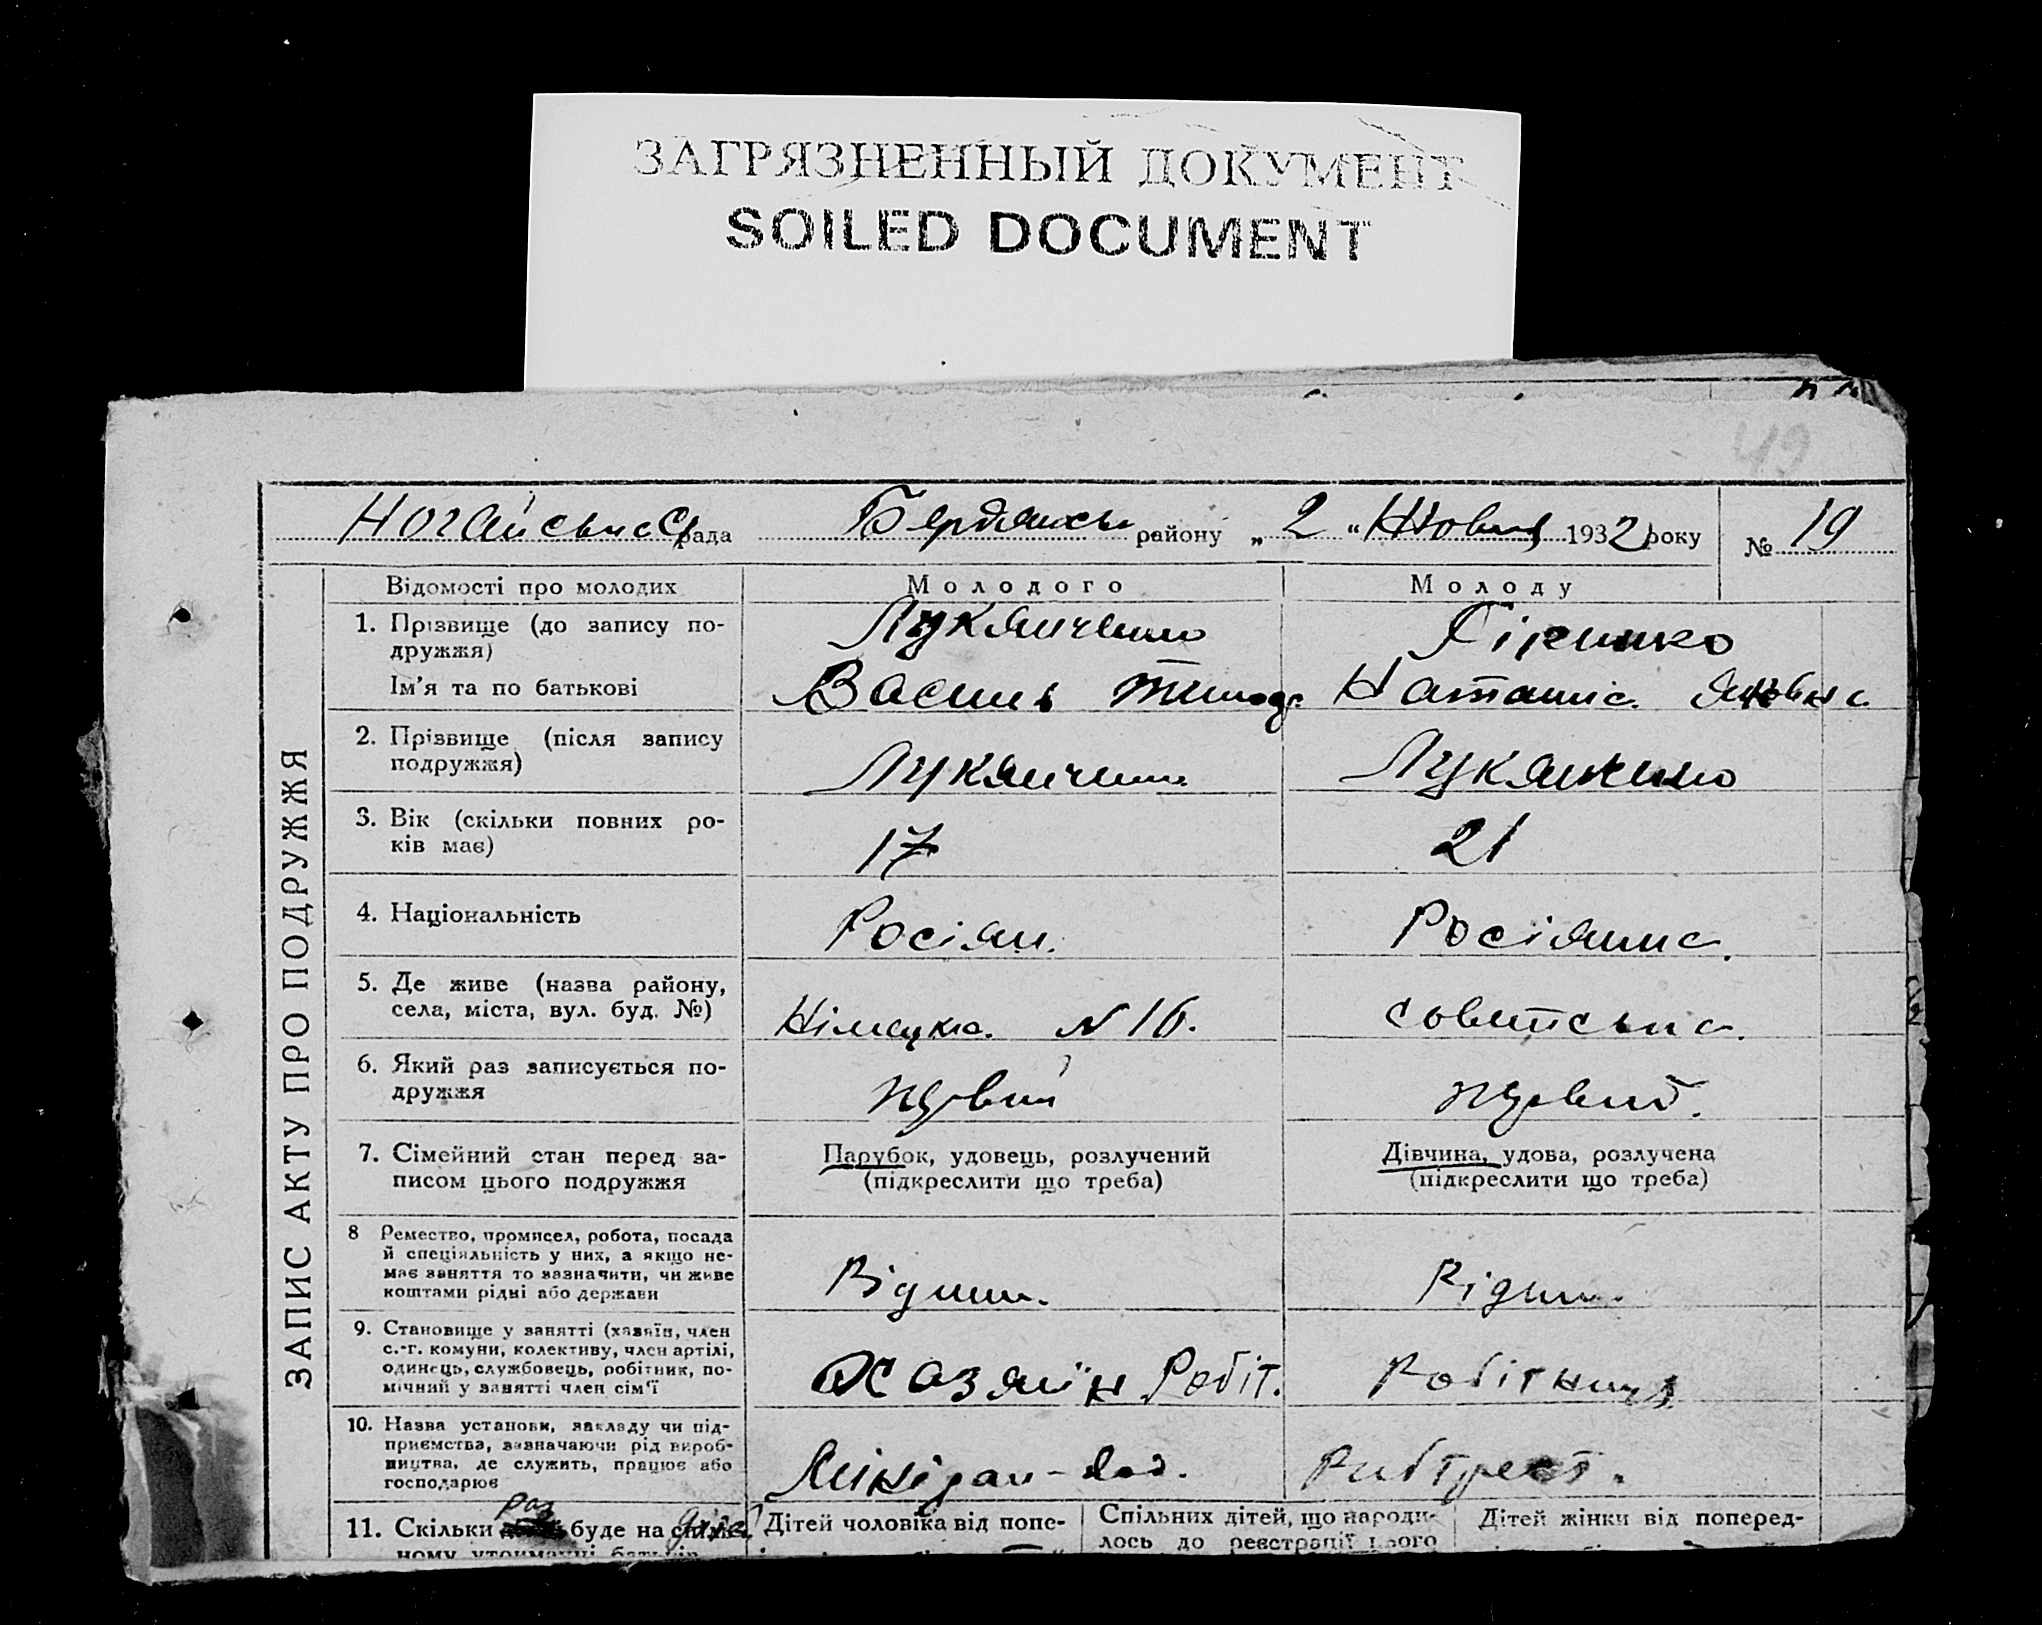 ЗАГРЯЗНЕННЫЙ ДОКУМЕНТ
SOILED DOCUMENT
49
Ногайська рада Бердянськ району „2“ Жовтня 1932 року № 19
ЗАПИС АКТУ ПРО ПОДРУЖЖЯ
Відомості про молодих Молодого Молоду
1. Прізвище (до запису по-
дружжя) Лукянченко
Ім'я та по батькові Василь Тимоф. Наташа Яківна
2. Прізвище (після запису
подружжя) Лукянченко Лукянченко
3. Вік (скільки повних ро-
ків має) 17 21
4. Національність Росіян. Росіянка.
5. Де живе (назва району,
села, міста, вул. буд. №) Німецька. N 16. Советська.
6. Який раз записується по-
дружжя первий первий.
7. Сімейний стан перед за-
писом цього подружжя
Парубок, удовець, розлучений
(підкреслити що треба)
Дівчина, удова, розлучена
(підкреслити що треба)
8 Ремество, промисел, робота, посада
й спеціяльність у них, а якщо не-
має заняття то зазначити, чи живе
коштами рідні або держави
9. Становище у занятті (хазяїн, член
с.-г. комуни, колективу, член артілі,
одинець, службовець, робітник, по-
мічний у занятті член сім'ї
Хазяїн Робіт. Робітниця
10. Назва установи, закладу чи під-
приємства, зазначаючи рід вироб-
ництва, де служить, працює або
господарює
Рибтрест.
11. Скільки раз буде на
ному утриманні батьків
Дітей чоловіка від попе-
Спільних дітей, що народи-
лось до реєстрації цього
Дітей жінки від поперед-